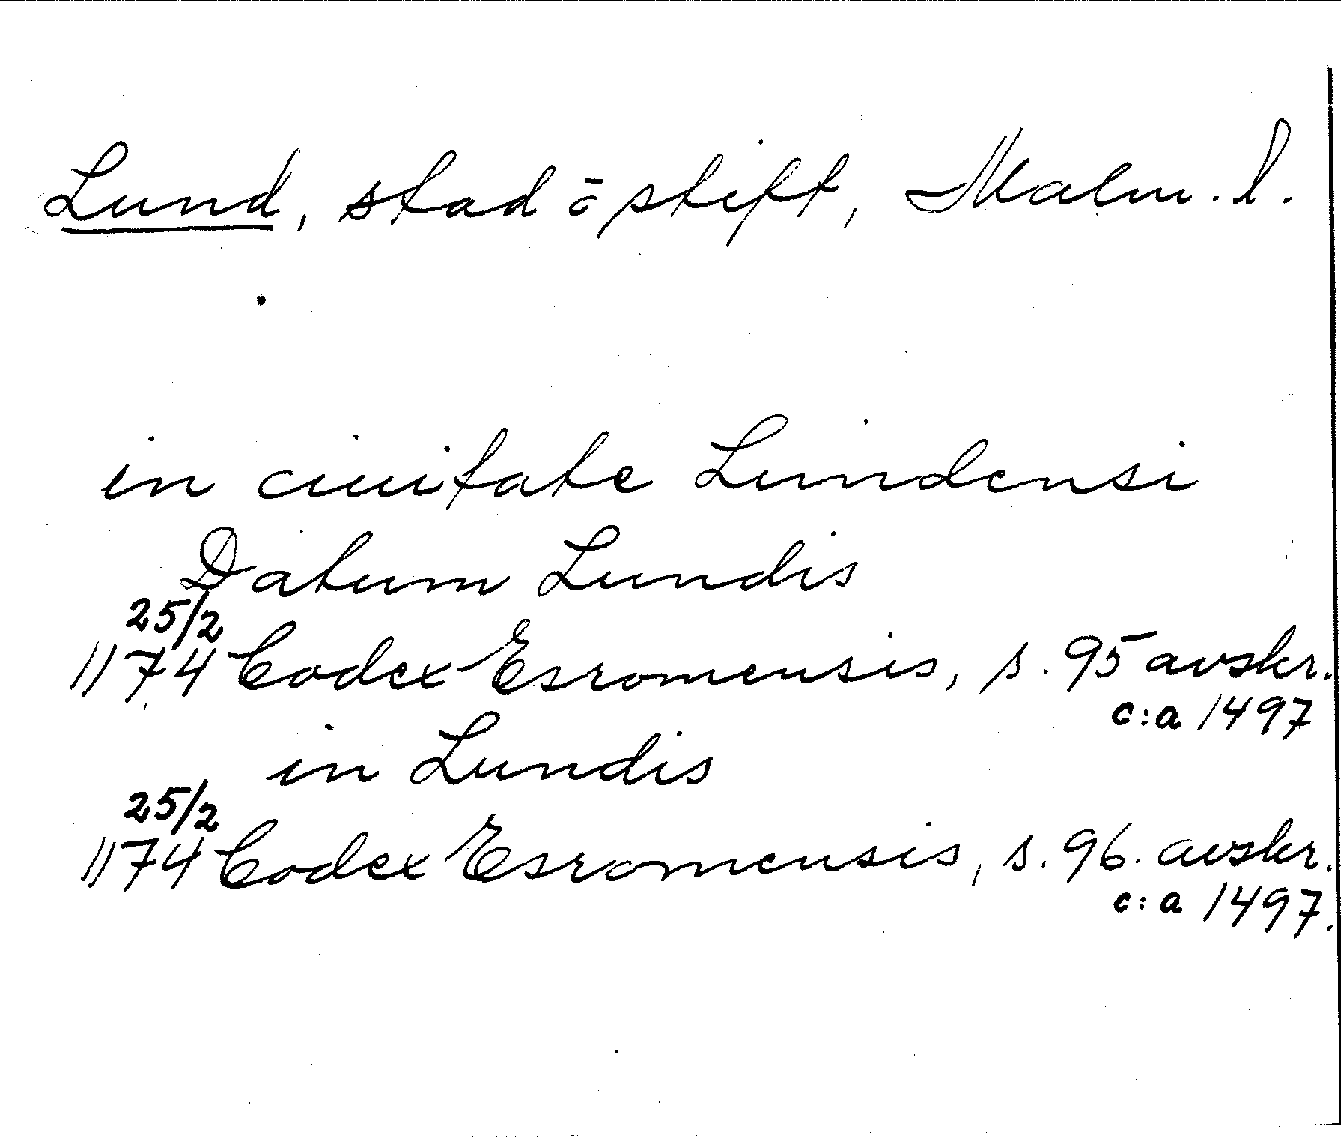 Lund, stad o stift, Malm. l.
in ciuitate Lundensi
Datum Lundis
25/2
1174 Codex Esromensis, s. 95 avskr.
c:a 1497
in Lundis
25/2
1174 Codex Esromensis, s. 96. avskr.
c:a 1497.